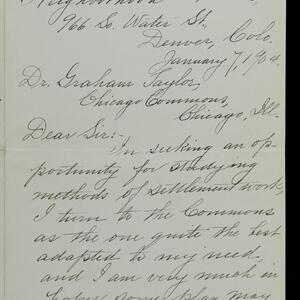 Neighborhood
966 So. Water St.,
Denver, Colo.
January 7, 1904.
Dr. Graham Taylor,
Chicago Commons,
Chicago, Ill.
Dear Sir:-
In seeking an op-
portunity for studying
methods of settlement work,
I turn to the Commons
as the one quite the best
adapted to my need.
and I am very much in
hopes some plan may